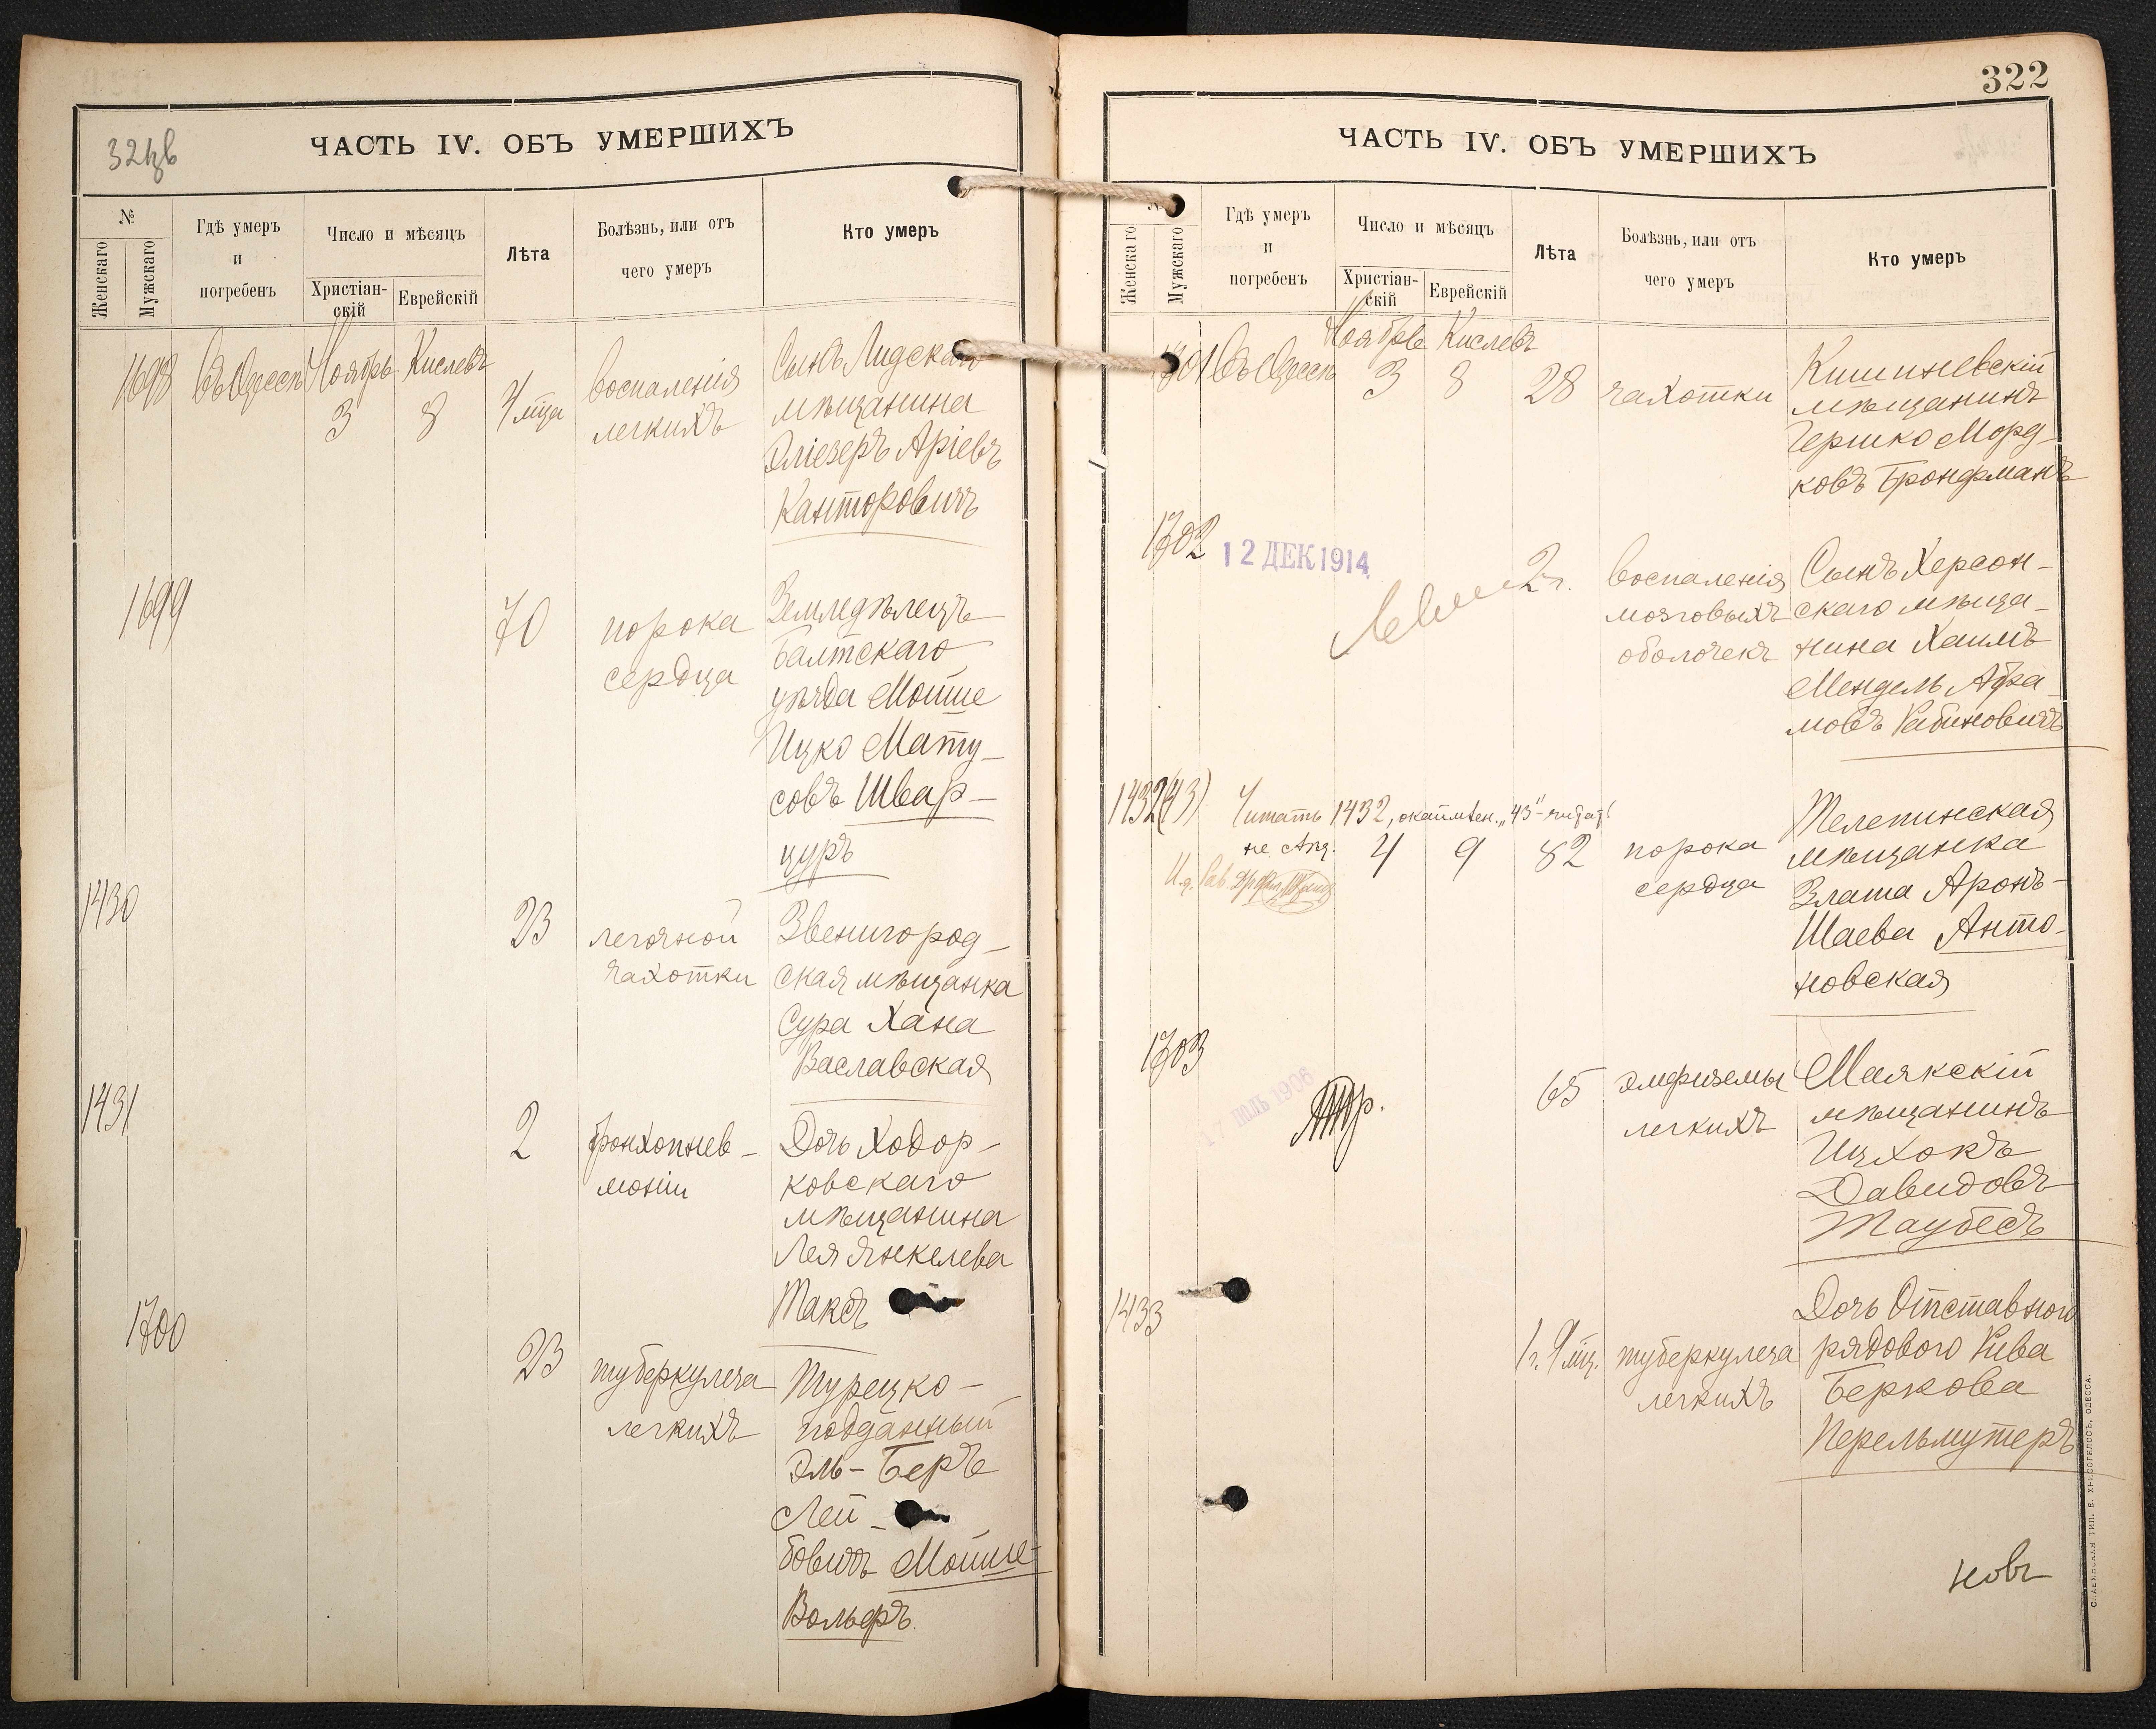 321об
ЧАСТЬ IV. ОБЪ УМЕРШИХЪ
№
Женскаго
Мужскаго
Гдѣ умеръ
и
погребенъ
Число и мѣсяцъ
Христіан-
скій
Еврейскій
Лѣта
Болѣзнь, или отъ
чего умеръ
Кто умеръ
1698
въ Одессѣ
Ноябрь
3
Кислевъ
8
4 мца
воспаленія
легкихъ
Сынъ Лидскаго
мѣщанина
Эліезеръ Аріевъ
Канторовичъ
1699
70
порока
сердца
Земледѣлецъ
Балтскаго
уѣзда Мойше
Ицко Мату-
совъ Швар-
цуръ
1430
23
легочной
чахотки
Звенигород-
ская мѣщанка
Сура Хана
Заславская
1431
2
бронхопнев-
моніи
Дочь Ходор-
ковскаго
мѣщанина
Лея Янкелева
Таксъ
1700
23
туберкулеза
легкихъ
Турецко-
подданный
Эль-Беръ
Лей-
бовичъ Мойше-
Вольфъ.
322
ЧАСТЬ IV. ОБЪ УМЕРШИХЪ
№
Женскаго
Мужскаго
Гдѣ умеръ
и
погребенъ
Число и мѣсяцъ
Христіан-
скій
Еврейскій
Лѣта
Болѣзнь, или отъ
чего умеръ
Кто умеръ
1701
въ Одессѣ
Ноябрь
3
Кислевъ
8
28
чахотки
Кишиневскій
мѣщанинъ
Гершко Морд-
ковъ Бронфманъ
1702
12 ДЕК 1914
2 г.
воспаленія
мозговыхъ
оболочекъ
Сынъ Херсон-
скаго мѣща-
нина Хаимъ
Мендель Абра-
мовъ Рабиновичъ
1432(43)
Читать 1432, "43"
не
4
9
82
порока
сердца
Телепинская
мѣщанка
Злата Аронъ-
Шаева Анто-
новская
1703
17 ІЮЛЬ 1906
65
эмфиземы
легкихъ
Маякскій
мѣщанинъ
Ицхокъ
Давидовъ
Таубесъ
1433
1 г. 9 мц.
туберкулеза
легкихъ
Дочь Отставного
рядового Рива
Беркова
Перельмутеръ
СЛАВЯНСКАЯ ТИП. Е. ХРИСОГЕЛОСЪ, ОДЕССА.